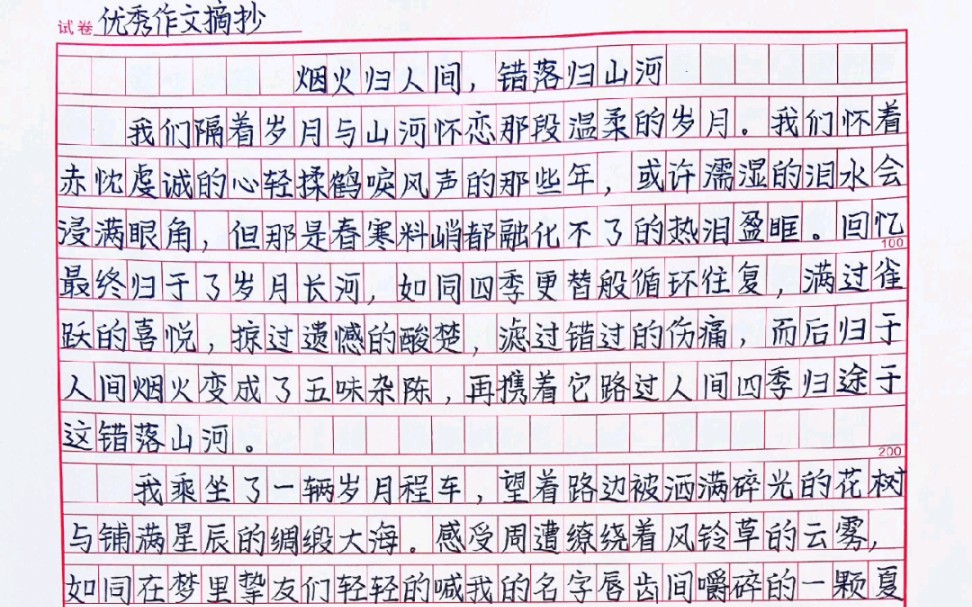 试卷 优秀作文摘抄
烟火归人间，错落归山河
我们隔着岁月与山河怀恋那段温柔的岁月。我们怀着
赤忱虔诚的心轻揉鹤唳风声的那些年，或许濡湿的泪水会
浸满眼角，但那是春寒料峭都融化不了的热泪盈眶。回忆
100
最终归于了岁月长河，如同四季更替般循环往复，满过雀
跃的喜悦，掠过遗憾的酸楚，滤过错过的伤痛，而后归于
人间烟火变成了五味杂陈，再携着它路过人间四季归途于
这错落山河。
200
我乘坐了一辆岁月程车，望着路边被洒满碎光的花树
与铺满星辰的绸缎大海。感受周遭缭绕着风铃草的云雾，
如同在梦里挚友们轻轻的喊我的名字唇齿间嚼碎的一颗夏